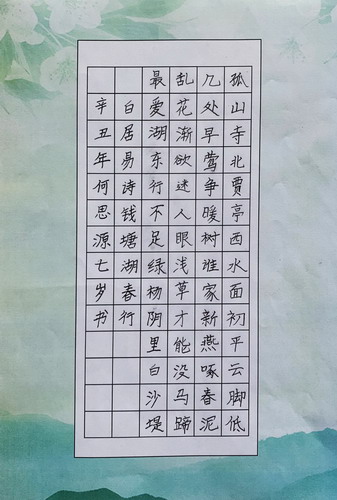 孤山寺北贾亭西水面初平云脚低
几处早莺争暖树谁家新燕啄春泥
乱花渐欲迷人眼浅草才能没马蹄
最爱湖东行不足绿杨阴里白沙堤
白居易诗钱塘湖春行
辛丑年何思源七岁书